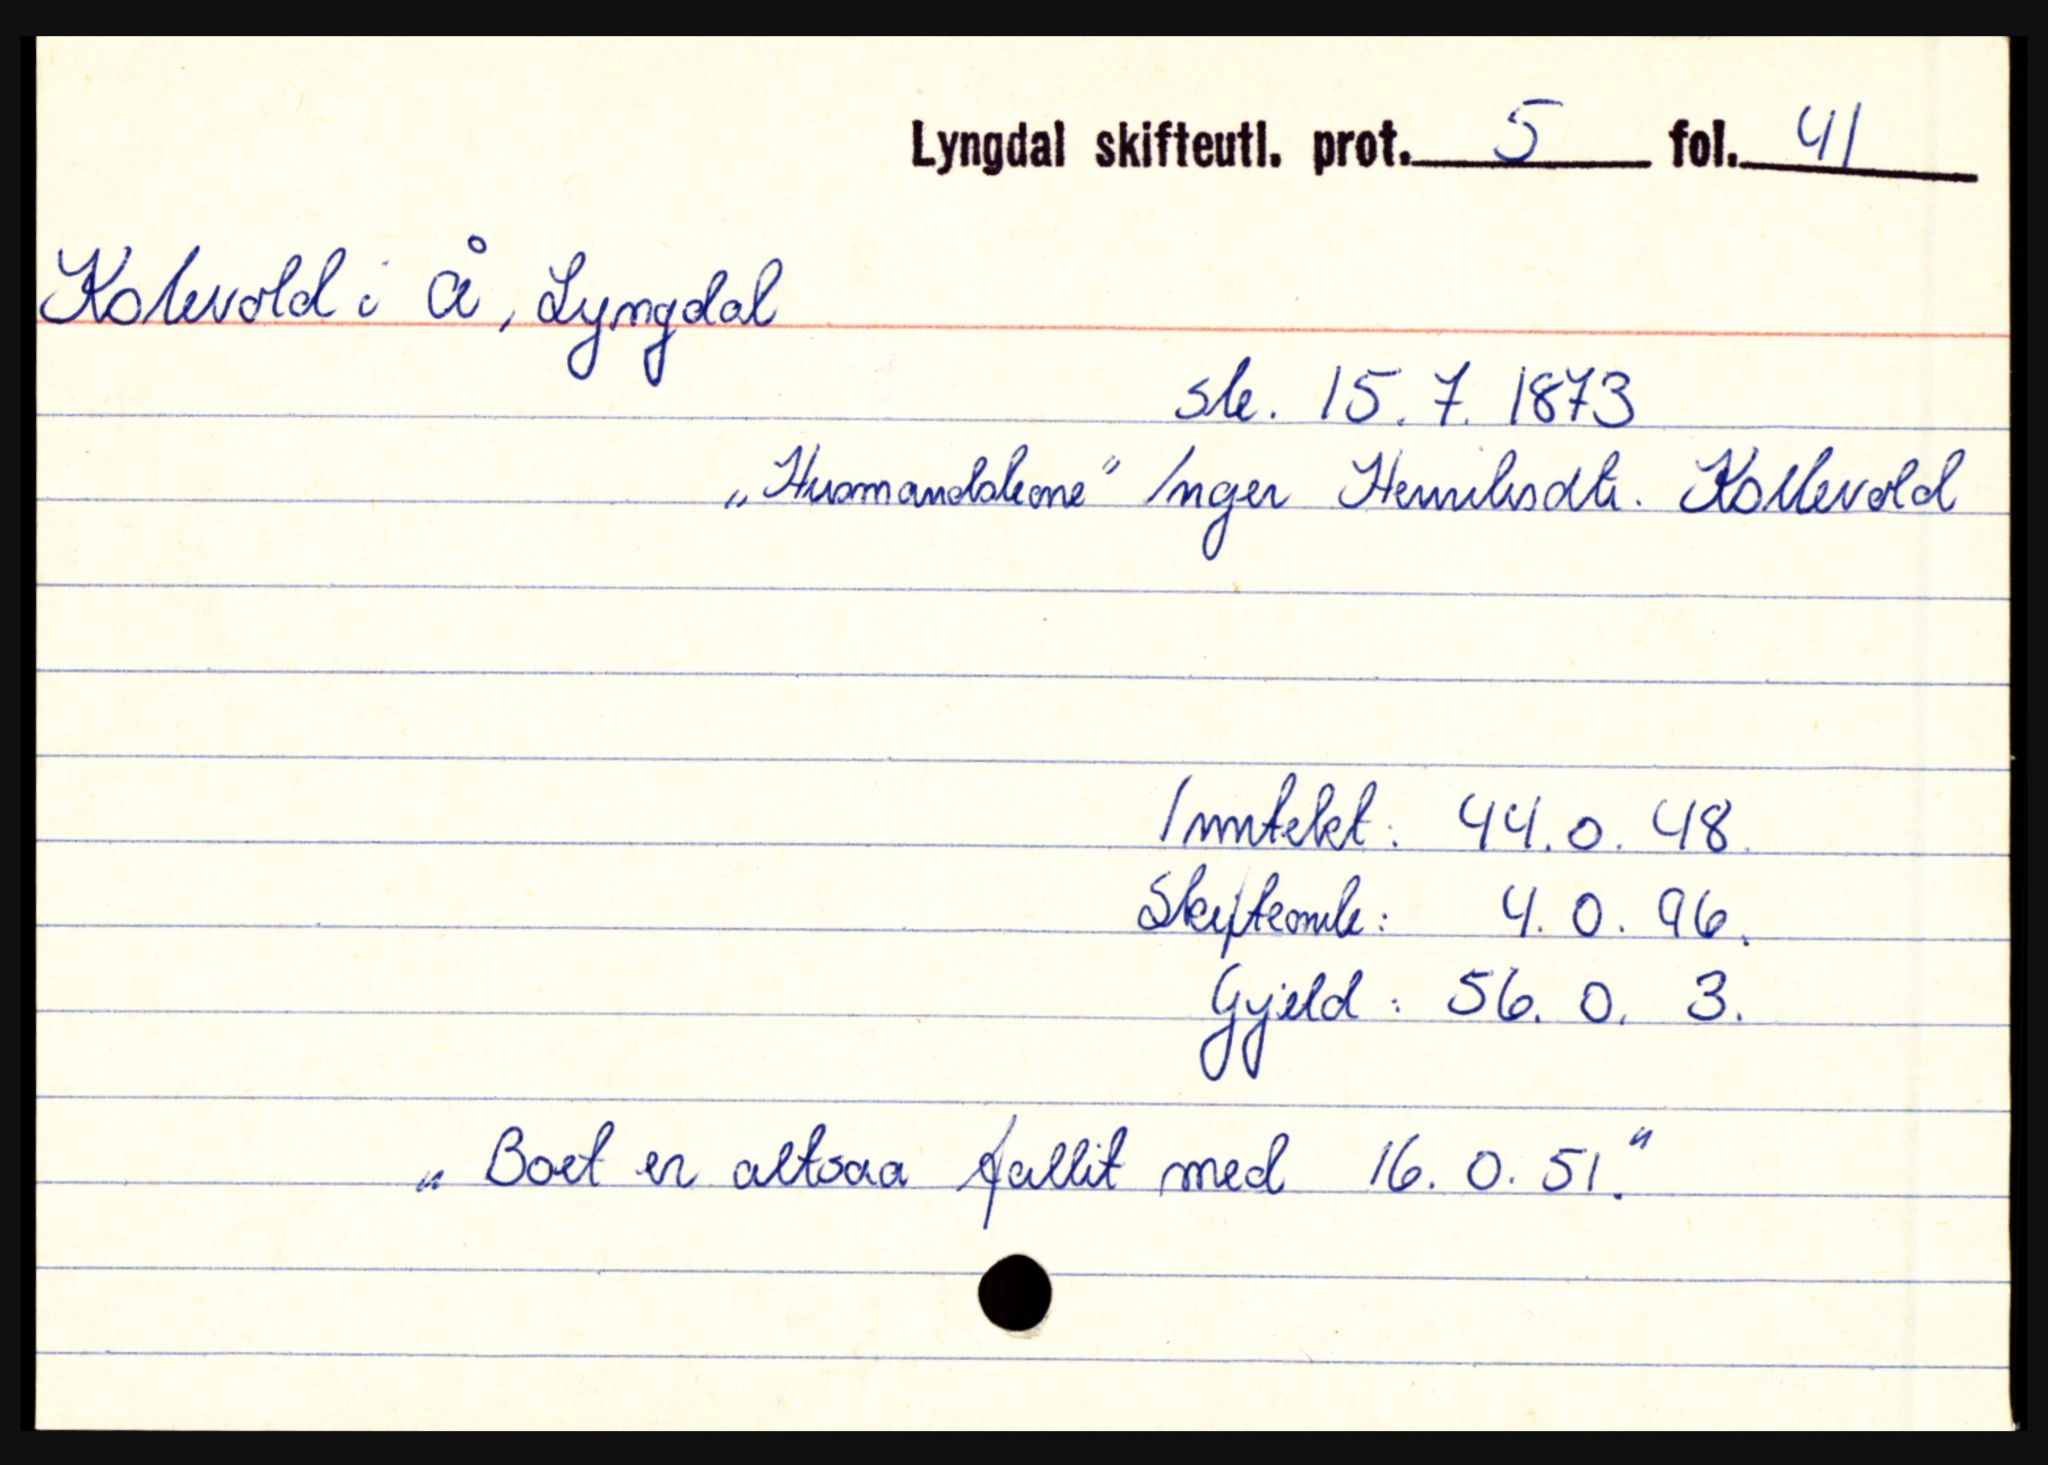 Lyngdal skifteutl. prot. 5 fol. 41
Kolevold i Å, Lyngdal
sk. 15.7. 1873
„Husmandskone" Inger Henriksdtr. Kollevold
Inntekt: 44. 0. 48.
Skifteomk: 4. 0. 96.
Gjeld: 56. 0. 3.
„Boet er altsaa fallit med 16. 0. 51."